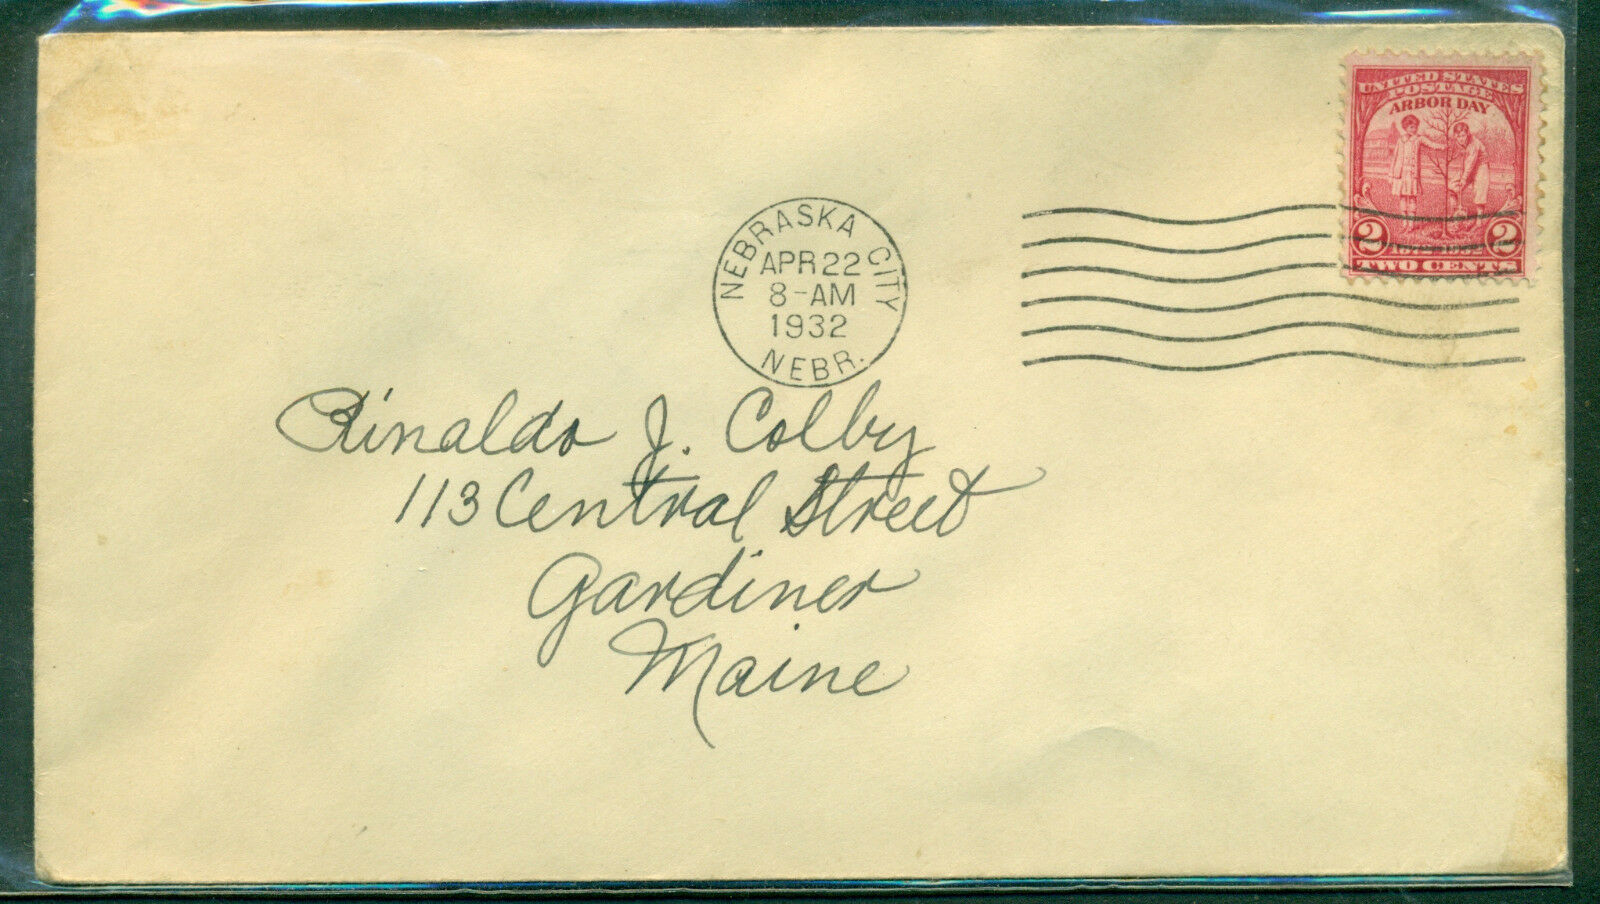 UNITED STATES
POSTAGE
ARBOR DAY
2 2
TWO CENTS
NEBRASKA CITY
APR 22
8-AM
1932
NEBR.
Rinaldo J. Colby
113 Central Street
Gardiner
Maine